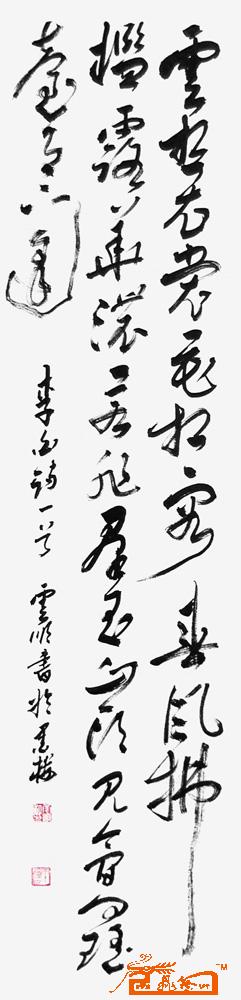 雲想衣裳花想容春風拂
檻露華濃若非羣玉山頭見會向瑤
臺月下逢
李白詩一首 雲順書於